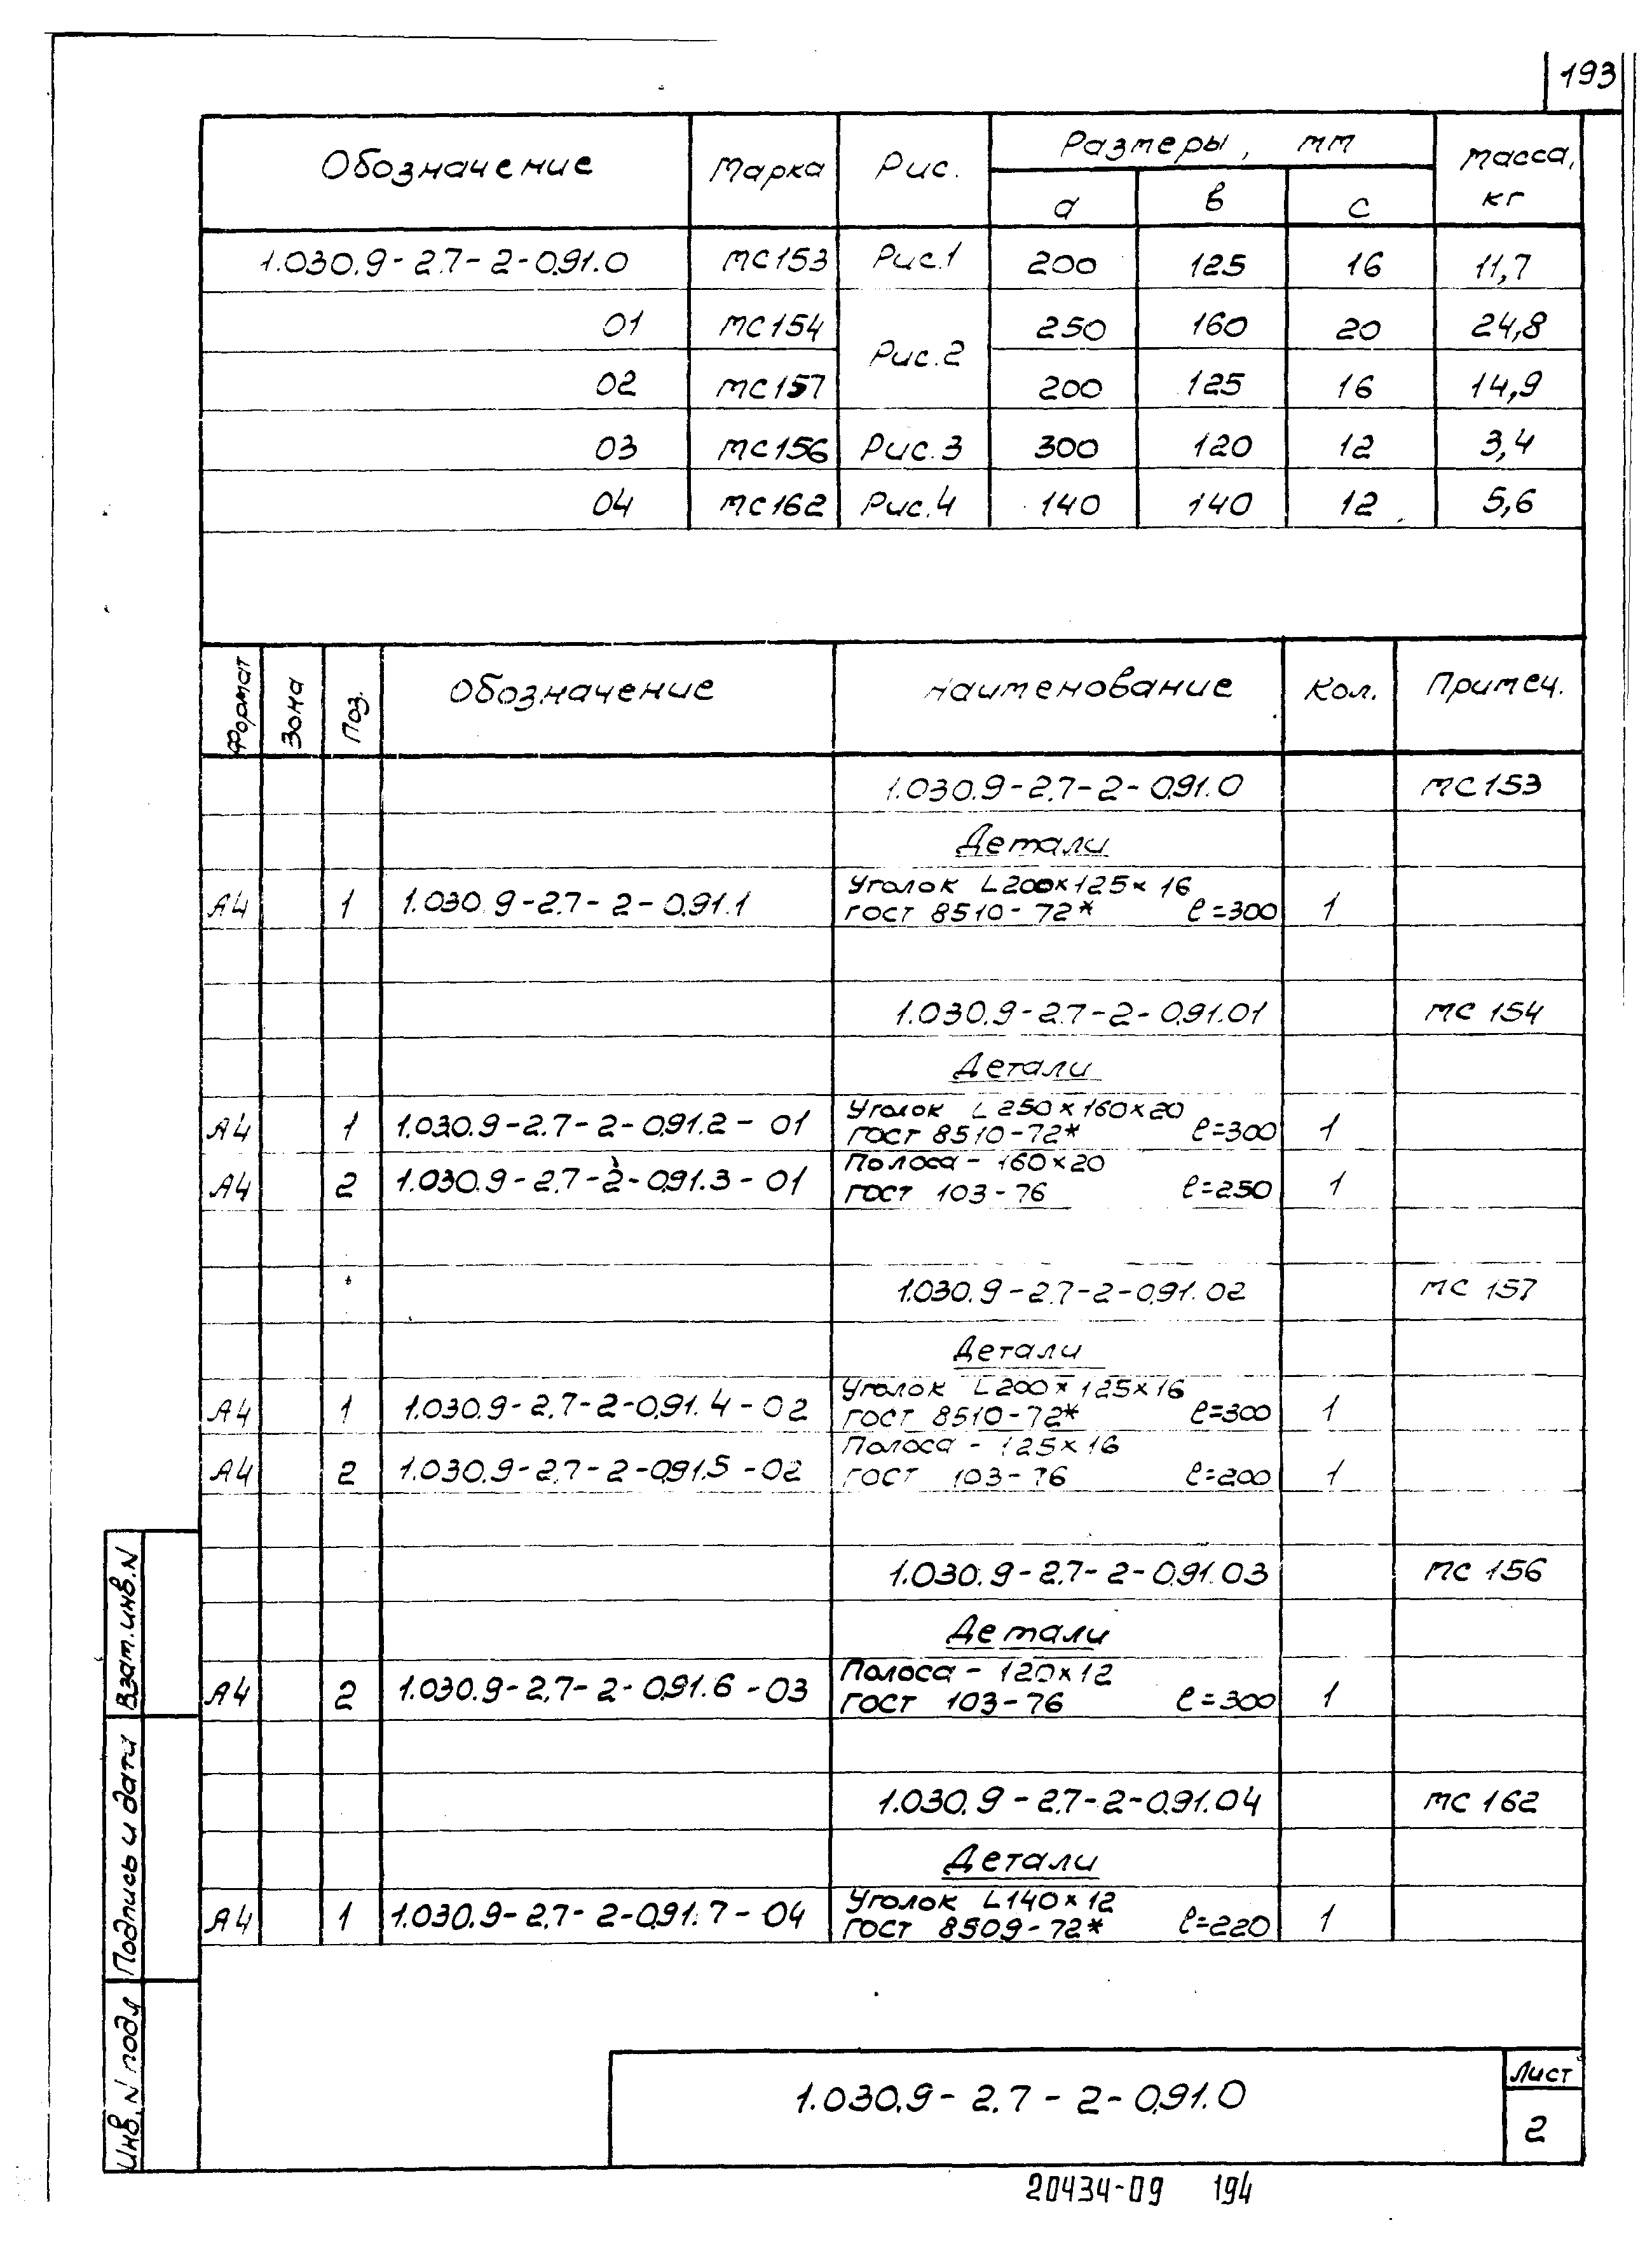 193
Обозначение Марка Рис. Размеры, мм Масса, кг
а в с
1.030.9-2.7-2-0.91.0 МС153 Рис.1 200 125 16 11,7
01 МС154 Рис.2 250 160 20 24,8
02 МС157 200 125 16 14,9
03 МС156 Рис.3 300 120 12 3,4
04 МС162 Рис.4 140 140 12 5,6
Формат Зона Поз. Обозначение Наименование Кол. Примеч.
1.030.9-2.7-2-0.91.0 МС153
Детали
А4 1 1.030.9-2.7-2-0.91.1 Уголок L200×125×16
ГОСТ 8510-72* ℓ=300 1
1.030.9-2.7-2-0.91.01 МС 154
Детали
А4 1 1.030.9-2.7-2-0.91.2-01 Уголок L250×160×20
ГОСТ 8510-72* ℓ=300 1
А4 2 1.030.9-2.7-2-0.91.3-01 Полоса - 160×20
ГОСТ 103-76 ℓ=250 1
1.030.9-2.7-2-0.91.02 МС 157
Детали
А4 1 1.030.9-2.7-2-0.91.4-02 Уголок L200×125×16
ГОСТ 8510-72* ℓ=300 1
А4 2 1.030.9-2.7-2-0.91.5-02 Полоса - 125×16
ГОСТ 103-76 ℓ=200 1
1.030.9-2.7-2-0.91.03 МС 156
Детали
А4 2 1.030.9-2.7-2-0.91.6-03 Полоса - 120×12
ГОСТ 103-76 ℓ=300 1
1.030.9-2.7-2-0.91.04 МС 162
Детали
А4 1 1.030.9-2.7-2-0.91.7-04 Уголок L140×12
ГОСТ 8509-72* ℓ=220 1
Взам.инв.N
Подпись и дата
Инв.N подл
1.030.9-2.7-2-0.91.0
Лист
2
20434-09 194